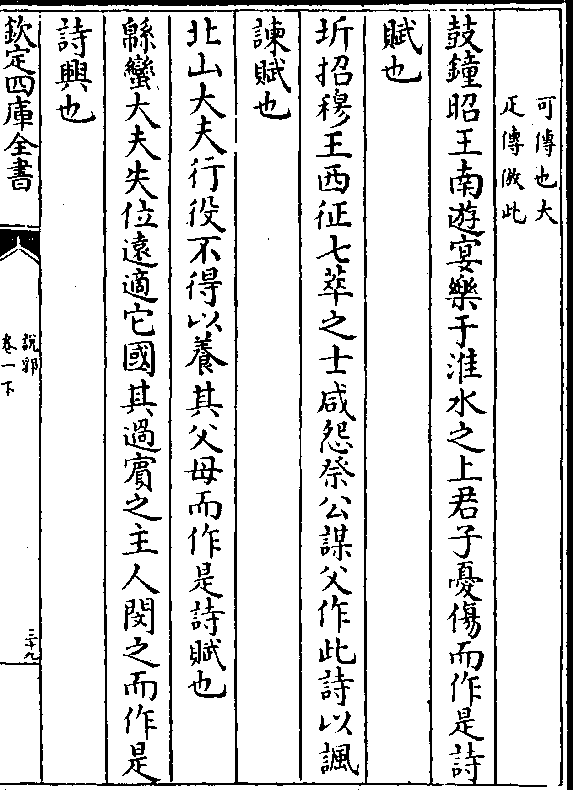 可傳也大
疋傳倣此
鼓鐘昭王南遊宴樂于淮水之上君子憂傷而作是詩
賦也
圻招穆王西征七萃之士咸怨祭公謀父作此詩以諷
諫賦也
北山大夫行役不得以養其父母而作是詩賦也
緜蠻大夫失位遠適它國其過賓之主人閔之而作是
詩興也
欽定四庫全書
說郛
卷一下
三十九